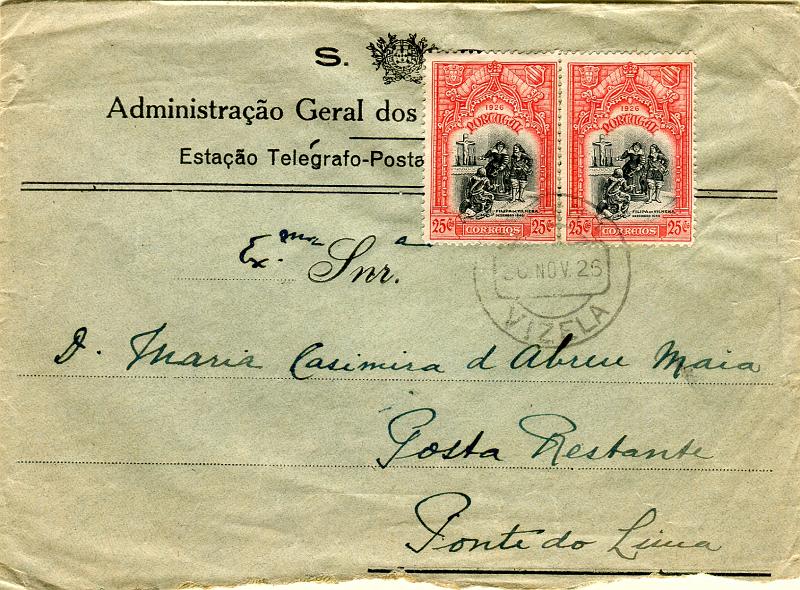 S.
Administração Geral dos
Estação Telégrafo-Posta
1926
PORTUGAL
FILIPA DE VILHENA
25c CORREIOS 25c
1926
PORTUGAL
FILIPA DE VILHENA
25c CORREIOS 25c
NOV. 26
VIZELA
Ex.ma Snr.a
D. Maria Casimira d'Abreu Maia
Posta Restante
Ponte do Lima